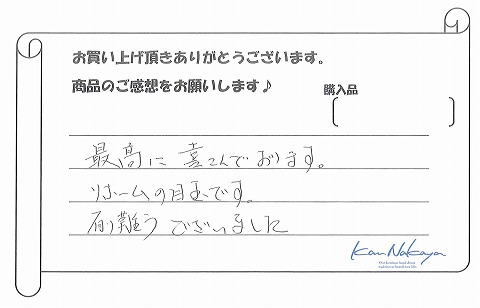 お買い上げ頂きありがとうございます。
商品のご感想をお願いします♪
購入品
最高に喜こんでおります。
リホームの目玉です。
有難うございました
Kan Nakaya